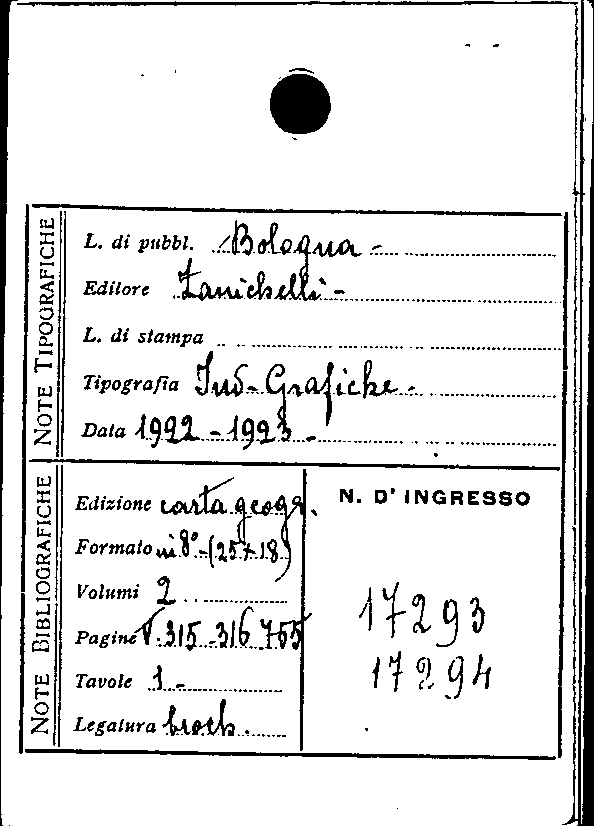 NOTE TIPOGRAFICHE
L. di pubbl. Bologna -
Editore Zanichelli -
L. di stampa
Tipografia Ind - Grafiche -
Data 1922 - 1923 -
NOTE BIBLIOGRAFICHE
Edizione carta geogr.
Formato in 8° - (25 x 18)
Volumi 2
Pagine V. 315 - 316 755
Tavole 1 -
Legatura broch.
N. D' INGRESSO
17293
17294